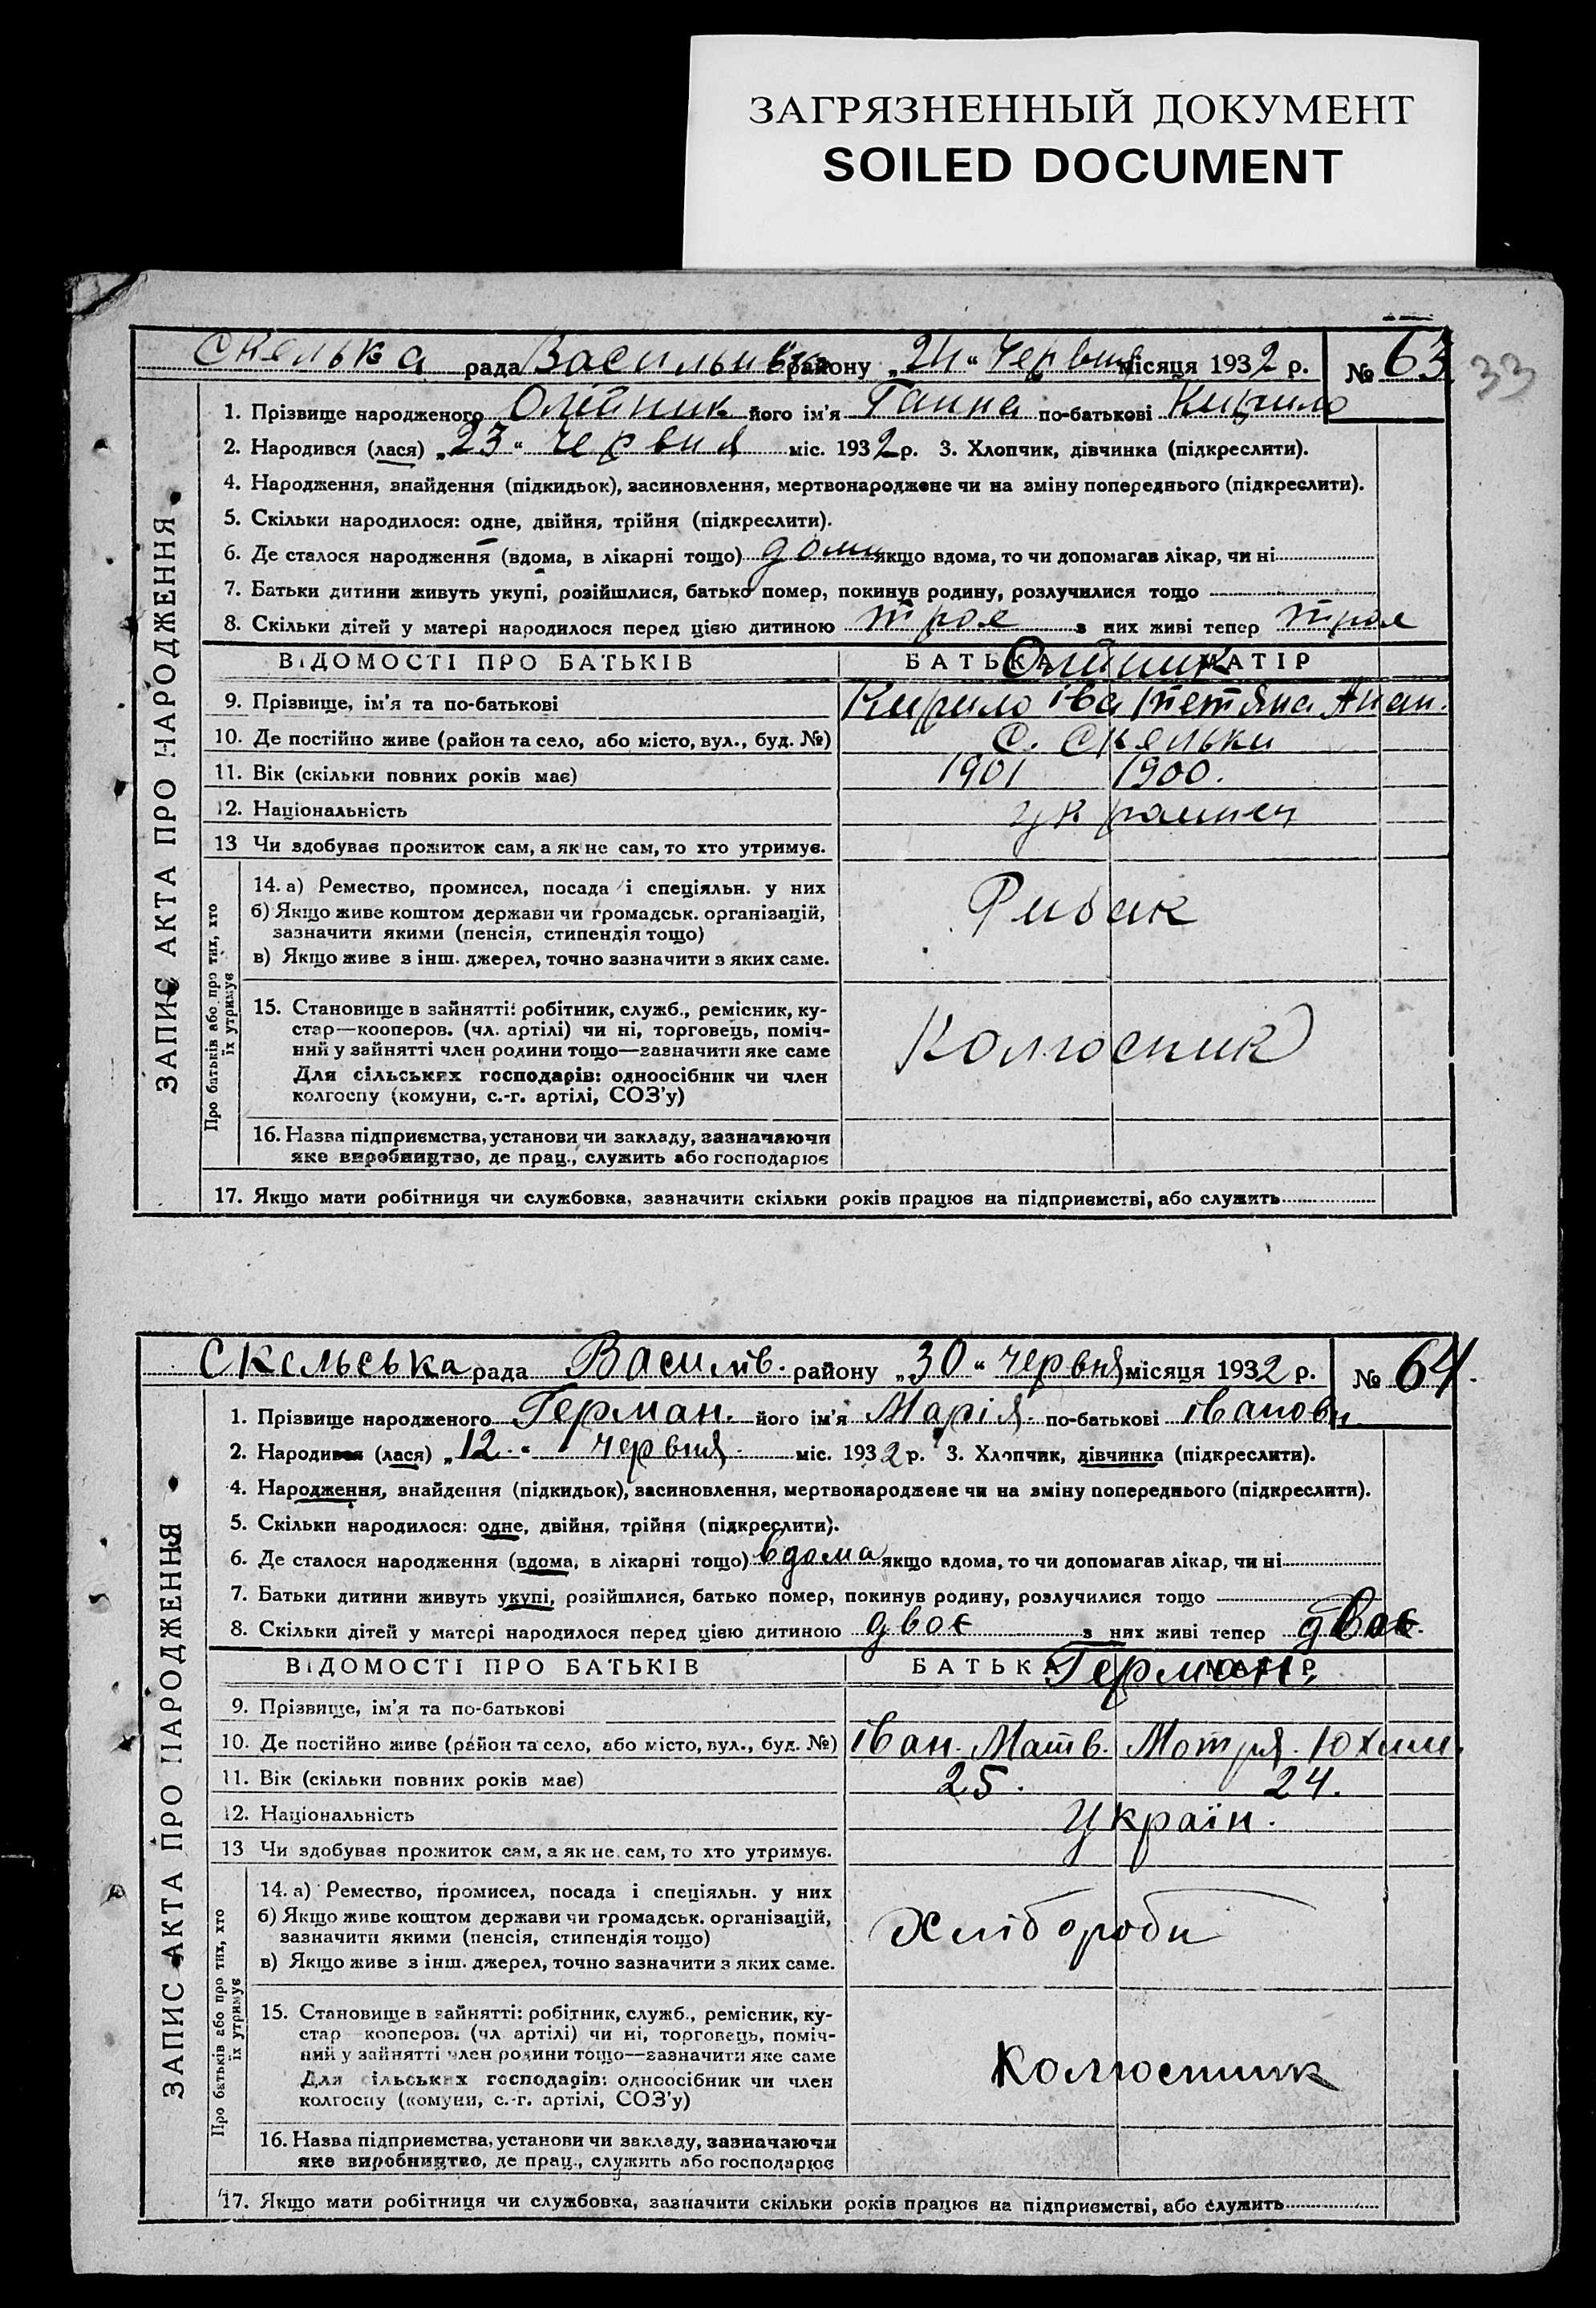 ЗАГРЯЗНЕННЫЙ ДОКУМЕНТ
SOILED DOCUMENT
33
ЗАПИС АКТА ПРО НАРОДЖЕННЯ
Скелька рада Василівка району „24“ Червня місяця 1932 р. № 63
1. Прізвище народженого Олійник його ім’я Ганна по-батькові Кирило
2. Народився (лася) „23“ червня міс. 1932 р. 3. Хлопчик, дівчинка (підкреслити).
4. Народження, знайдення (підкидьок), засиновлення, мертвонароджене чи на зміну попереднього (підкреслити).
5. Скільки народилося: одне, двійня, трійня (підкреслити).
6. Де сталося народження (вдома, в лікарні тощо) дома якщо вдома, то чи допомагав лікар, чи ні
7. Батьки дитини живуть укупі, розійшлися, батько помер, покинув родину, розлучилися тощо
8. Скільки дітей у матері народилося перед цією дитиною троє з них живі тепер троє
ВІДОМОСТІ ПРО БАТЬКІВ БАТЬКА Олійник МАТІР
9. Прізвище, ім’я та по-батькові Кирило Іва Тетяна Анан.
10. Де постійно живе (район та село, або місто, вул., буд. №) С. Скельки
11. Вік (скільки повних років має) 1901 1900.
12. Національність украинец
13 Чи здобуває прожиток сам, а як не сам, то хто утримує.
Про батьків або про тих, хто їх утримує
14. а) Ремество, промисел, посада і спеціяльн. у них
б) Якщо живе коштом держави чи громадськ. організацій,
зазначити якими (пенсія, стипендія тощо)
Рибак
в) Якщо живе з інш. джерел, точно зазначити з яких саме.
15. Становище в зайнятті: робітник, служб., ремісник, ку-
стар—кооперов. (чл. артілі) чи ні, торговець, поміч-
ний у зайнятті член родини тощо—зазначити яке саме
Колгосник
Для сільських господарів: одноосібник чи член
колгоспу (комуни, с.-г. артілі, СОЗ’у)
16. Назва підприємства, установи чи закладу, зазначаючи
яке виробництво, де прац., служить або господарює
17. Якщо мати робітниця чи службовка, зазначити скільки років працює на підприємстві, або служить
ЗАПИС АКТА ПРО НАРОДЖЕННЯ
Скельська рада Василів. району „30“ червня місяця 1932 р. № 64.
1. Прізвище народженого Герман. його ім’я Марія. по-батькові Івановн
2. Народився (лася) „12.“ червня. міс. 1932 р. 3. Хлопчик, дівчинка (підкреслити).
4. Народження, знайдення (підкидьок), засиновлення, мертвонароджене чи на зміну попереднього (підкреслити).
5. Скільки народилося: одне, двійня, трійня (підкреслити).
6. Де сталося народження (вдома, в лікарні тощо) вдома якщо вдома, то чи допомагав лікар, чи ні
7. Батьки дитини живуть укупі, розійшлися, батько помер, покинув родину, розлучилися тощо
8. Скільки дітей у матері народилося перед цією дитиною двоє з них живі тепер двоє.
ВІДОМОСТІ ПРО БАТЬКІВ БАТЬКА Герман. МАТІР
9. Прізвище, ім’я та по-батькові
10. Де постійно живе (район та село, або місто, вул., буд. №) Іван. Матв. Мотря. Юхим.
11. Вік (скільки повних років має) 25. 24.
12. Національність Україн.
13 Чи здобуває прожиток сам, а як не сам, то хто утримує.
Про батьків або про тих, хто їх утримує
14. а) Ремество, промисел, посада і спеціяльн. у них
б) Якщо живе коштом держави чи громадськ. організацій,
зазначити якими (пенсія, стипендія тощо)
Хлібороби
в) Якщо живе з інш. джерел, точно зазначити з яких саме.
15. Становище в зайнятті: робітник, служб., ремісник, ку-
стар кооперов. (чл артілі) чи ні, торговець, поміч-
ний у зайнятті член родини тощо—зазначити яке саме
Колгоспник
Для сільських господарів: одноосібник чи член
колгоспу (комуни, с.-г. артілі, СОЗ’у)
16. Назва підприємства, установи чи закладу, зазначаючи
яке виробництво, де прац., служить або господарює
17. Якщо мати робітниця чи службовка, зазначити скільки років працює на підприємстві, або служить